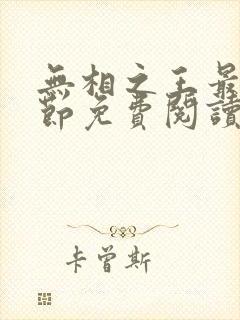 無相之王最
節免費閱讀
卡曾斯